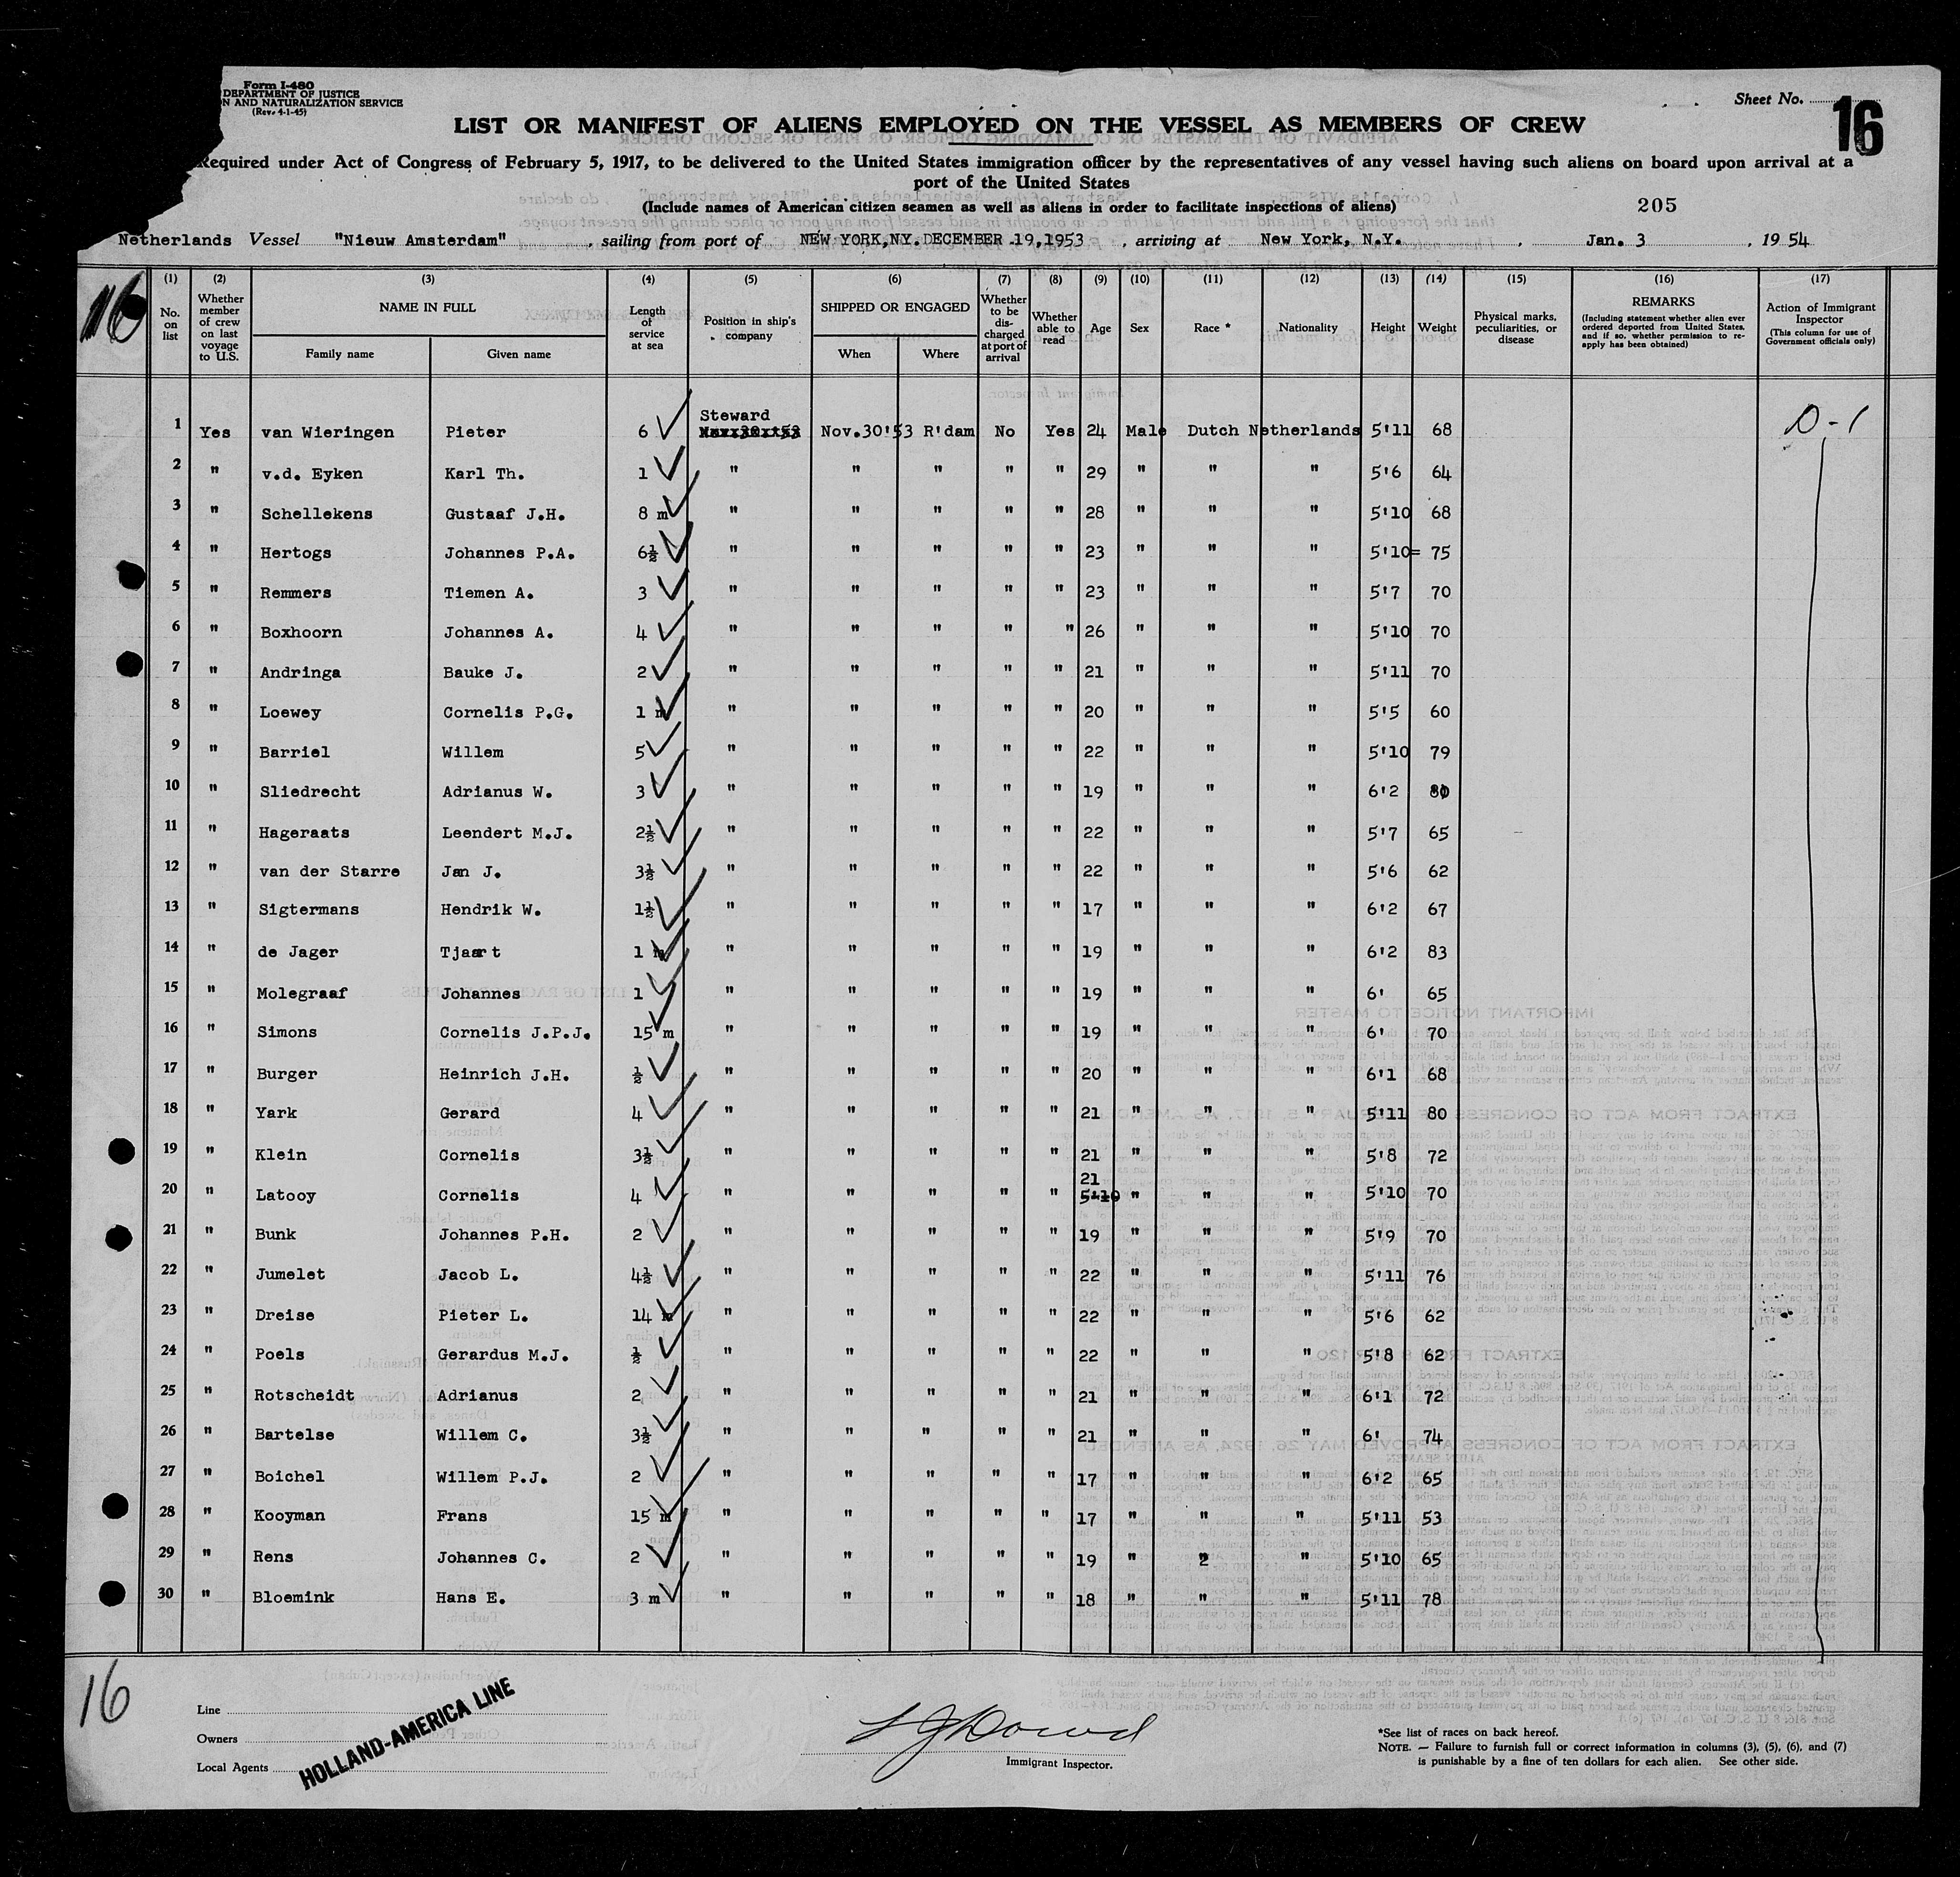 Form I-480
DEPARTMENT OF JUSTICE
N AND NATURALIZATION SERVICE
(Rev. 4-1-45)
Sheet No. 16
LIST OR MANIFEST OF ALIENS EMPLOYED ON THE VESSEL AS MEMBERS OF CREW
Required under Act of Congress of February 5, 1917, to be delivered to the United States immigration officer by the representatives of any vessel having such aliens on board upon arrival at a
port of the United States
(Include names of American citizen seamen as well as aliens in order to facilitate inspections of aliens)
205
Netherlands Vessel "Nieuw Amsterdam", sailing from port of NEW YORK,NY.DECEMBER 19,1953, arriving at New York, N.Y., Jan. 3, 19 54
16
(1) (2) (3) (4) (5) (6) (7) (8) (9) (10) (11) (12) (13) (14) (15) (16) (17)
No. on list
Whether member of crew on last voyage to U.S.
NAME IN FULL
Family name Given name
Length of service at sea
Position in ship's company
SHIPPED OR ENGAGED
When Where
Whether to be discharged at port of arrival
Whether able to read
Age
Sex
Race *
Nationality
Height
Weight
Physical marks, peculiarities, or disease
REMARKS
(Including statement whether alien ever ordered deported from United States, and if so, whether permission to reapply has been obtained)
Action of Immigrant Inspector
(This column for use of Government officials only)
Steward
1 Yes van Wieringen Pieter 6 Nov.30'53 R'dam No Yes 24 Male Dutch Netherlands 5'11 68 D-1
2 " v.d. Eyken Karl Th. 1 " " " " " 29 " " " 5'6 64
3 " Schellekens Gustaaf J.H. 8 m " " " " " 28 " " " 5'10 68
4 " Hertogs Johannes P.A. 6½ " " " " " 23 " " " 5'10= 75
5 " Remmers Tiemen A. 3 " " " " " 23 " " " 5'7 70
6 " Boxhoorn Johannes A. 4 " " " " " 26 " " " 5'10 70
7 " Andringa Bauke J. 2 " " " " " 21 " " " 5'11 70
8 " Loewey Cornelis P.G. 1 m " " " " " 20 " " " 5'5 60
9 " Barriel Willem 5 " " " " " 22 " " " 5'10 79
10 " Sliedrecht Adrianus W. 3 " " " " " 19 " " " 6'2
11 " Hageraats Leendert M.J. 2½ " " " " " 22 " " " 5'7 65
12 " van der Starre Jan J. 3½ " " " " " 22 " " " 5'6 62
13 " Sigtermans Hendrik W. 1½ " " " " " 17 " " " 6'2 67
14 " de Jager Tjaart 1 m " " " " " 19 " " " 6'2 83
15 " Molegraaf Johannes 1 " " " " " 19 " " " 6' 65
16 " Simons Cornelis J.P.J. 15 m " " " " " 19 " " " 6' 70
17 " Burger Heinrich J.H. ½ " " " " " 20 " " " 6'1 68
18 " Yark Gerard 4 " " " " " 21 " " " 5'11 80
19 " Klein Cornelis 3½ " " " " " 21 " " " 5'8 72
20 " Latooy Cornelis 4 " " " " " 21 5'10 " " " 5'10 70
21 " Bunk Johannes P.H. 2 " " " " " 19 " " " 5'9 70
22 " Jumelet Jacob L. 4½ " " " " " 22 " " " 5'11 76
23 " Dreise Pieter L. 14 m " " " " " 22 " " " 5'6 62
24 " Poels Gerardus M.J. ½ " " " " " 22 " " " 5'8 62
25 " Rotscheidt Adrianus 2 " " " " " 21 " " " 6'1 72
26 " Bartelse Willem C. 3½ " " " " " 21 " " " 6' 74
27 " Boichel Willem P.J. 2 " " " " " 17 " " " 6'2 65
28 " Kooyman Frans 15 m " " " " " 17 " " " 5'11 53
29 " Rens Johannes C. 2 " " " " " 19 " " " 5'10 65
30 " Bloemink Hans E. 3 m " " " " " 18 " " " 5'11 78
16
Line
Owners
Local Agents
HOLLAND-AMERICA LINE
Immigrant Inspector.
*See list of races on back hereof.
NOTE. — Failure to furnish full or correct information in columns (3), (5), (6), and (7)
is punishable by a fine of ten dollars for each alien. See other side.